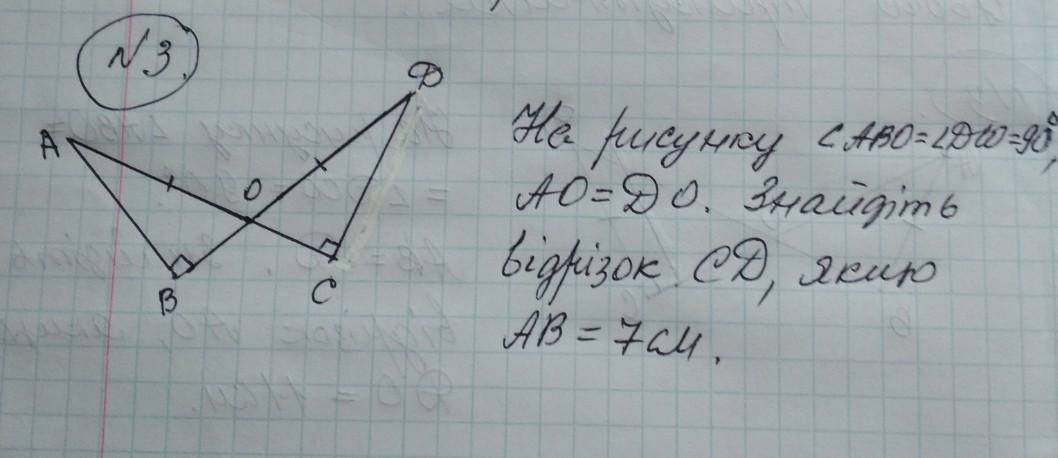 N3.
A
D
O
B
C
На рисунку ∠ABO=∠DCO=90°,
AO=DO. Знайдіть
відрізок CD, якщо
AB=7см.